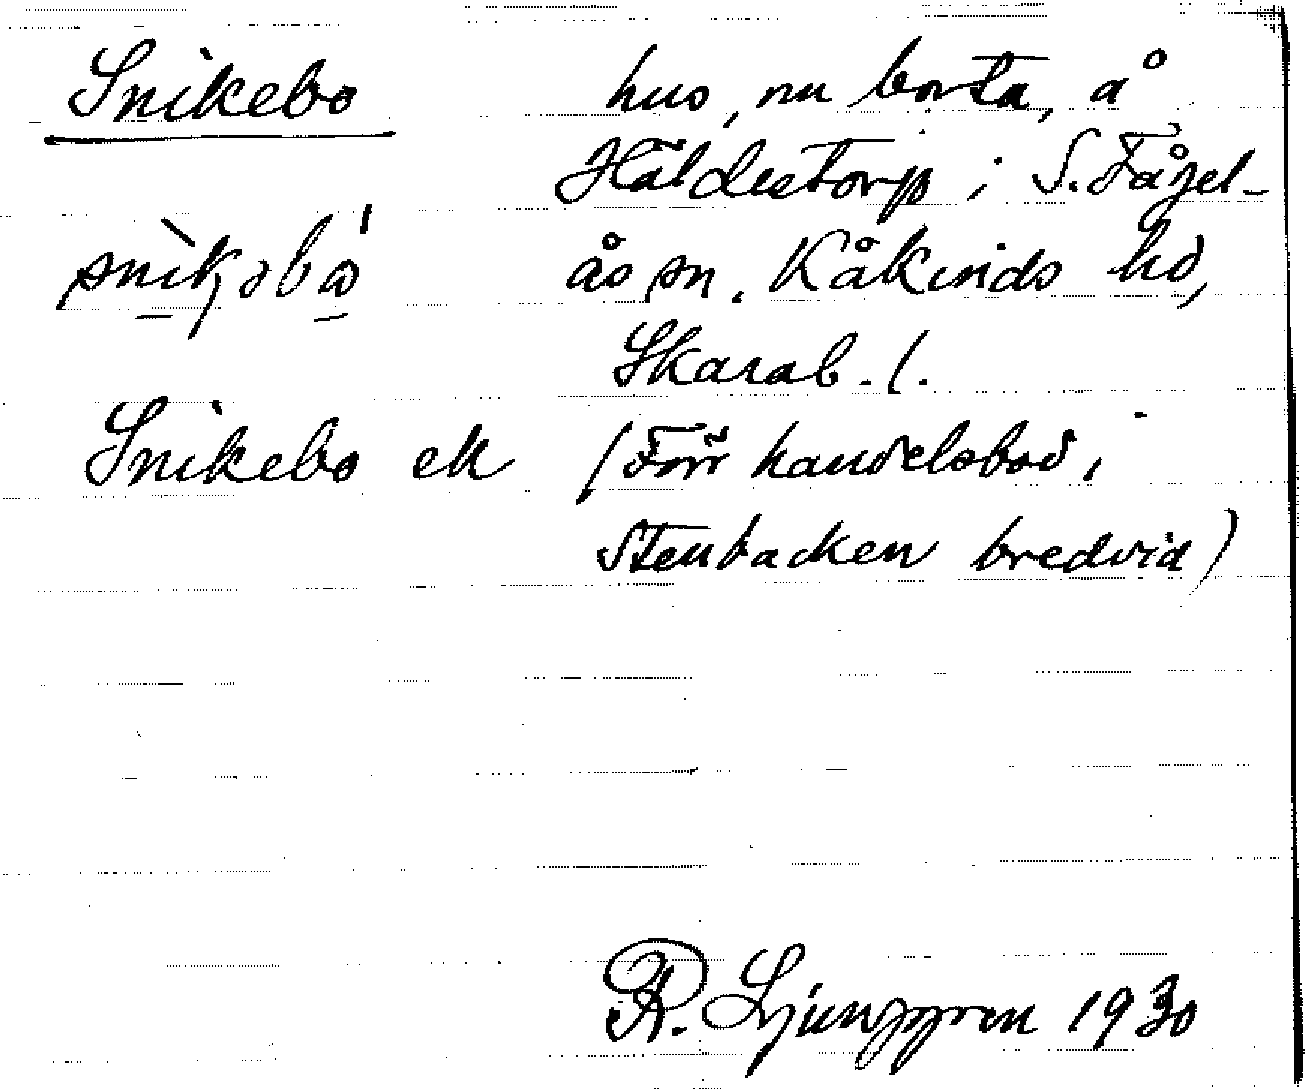 Snikebo hus, nu borta, å
Häldestorp i S. Fågel-
snìkəbω ås sn. Kåkinds hd,
Skarab. l.
Snikebo ek (Förr handelsbod i
Stenbacken bredvid)
R. Ljunggren 1930